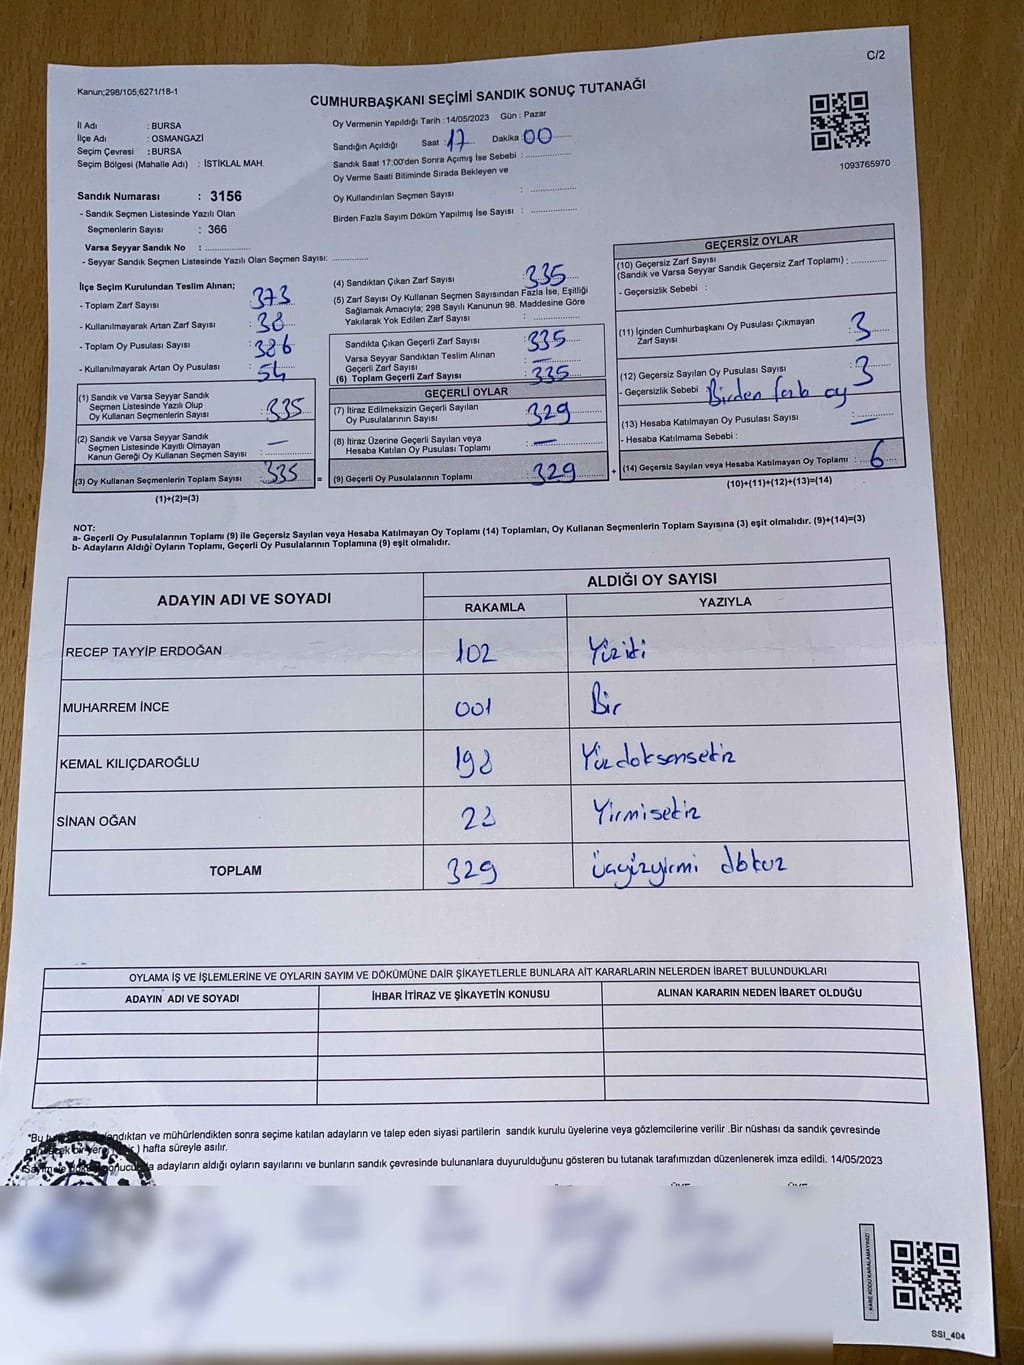 C/2
Kanun;298/105,6271/18-1
CUMHURBAŞKANI SEÇİMİ SANDIK SONUÇ TUTANAĞI
İl Adı : BURSA
İlçe Adı : OSMANGAZİ
Seçim Çevresi : BURSA
Seçim Bölgesi (Mahalle Adı) : İSTİKLAL MAH.
Sandık Numarası : 3156
- Sandık Seçmen Listesinde Yazılı Olan
Seçmenlerin Sayısı : 366
Varsa Seyyar Sandık No : ...............
- Seyyar Sandık Seçmen Listesinde Yazılı Olan Seçmen Sayısı: ............
Oy Vermenin Yapıldığı Tarih :14/05/2023 Gün : Pazar
Sandığın Açıldığı Saat :17 Dakika 00
Sandık Saat 17:00'den Sonra Açımış İse Sebebi : ...............
Oy Verme Saati Bitiminde Sırada Bekleyen ve
Oy Kullandırılan Seçmen Sayısı : ...............
Birden Fazla Sayım Döküm Yapılmış İse Sayısı : ...............
1093765970
İlçe Seçim Kurulundan Teslim Alınan;
- Toplam Zarf Sayısı : 373
- Kullanılmayarak Artan Zarf Sayısı : 38
- Toplam Oy Pusulası Sayısı : 386
- Kullanılmayarak Artan Oy Pusulası : 54
(1) Sandık ve Varsa Seyyar Sandık
Seçmen Listesinde Yazılı Olup
Oy Kullanan Seçmenlerin Sayısı : 335
(2) Sandık ve Varsa Seyyar Sandık
Seçmen Listesinde Kayıtlı Olmayan
Kanun Gereği Oy Kullanan Seçmen Sayısı : —
(3) Oy Kullanan Seçmenlerin Toplam Sayısı : 335 =
(1)+(2)=(3)
(4) Sandıktan Çıkan Zarf Sayısı : 335
(5) Zarf Sayısı Oy Kullanan Seçmen Sayısından Fazla İse, Eşitliği
Sağlamak Amacıyla; 298 Sayılı Kanunun 98. Maddesine Göre
Yakılarak Yok Edilen Zarf Sayısı : ...............
Sandıkta Çıkan Geçerli Zarf Sayısı : 335
Varsa Seyyar Sandıktan Teslim Alınan
Geçerli Zarf Sayısı : —
(6) Toplam Geçerli Zarf Sayısı : 335
GEÇERLİ OYLAR
(7) İtiraz Edilmeksizin Geçerli Sayılan
Oy Pusulalarının Sayısı : 329
(8) İtiraz Üzerine Geçerli Sayılan veya
Hesaba Katılan Oy Pusulası Toplamı : —
(9) Geçerli Oy Pusulalarının Toplamı : 329 +
GEÇERSİZ OYLAR
(10) Geçersiz Zarf Sayısı
(Sandık ve Varsa Seyyar Sandık Geçersiz Zarf Toplamı) : ...............
- Geçersizlik Sebebi :
(11) İçinden Cumhurbaşkanı Oy Pusulası Çıkmayan
Zarf Sayısı : 3
(12) Geçersiz Sayılan Oy Pusulası Sayısı : 3
- Geçersizlik Sebebi Birden fazla oy
(13) Hesaba Katılmayan Oy Pusulası Sayısı : —
- Hesaba Katılmama Sebebi :
(14) Geçersiz Sayılan veya Hesaba Katılmayan Oy Toplamı : 6
(10)+(11)+(12)+(13)=(14)
NOT:
a- Geçerli Oy Pusulalarının Toplamı (9) ile Geçersiz Sayılan veya Hesaba Katılmayan Oy Toplamı (14) Toplamları, Oy Kullanan Seçmenlerin Toplam Sayısına (3) eşit olmalıdır. (9)+(14)=(3)
b- Adayların Aldığı Oyların Toplamı, Geçerli Oy Pusulalarının Toplamına (9) eşit olmalıdır.
ADAYIN ADI VE SOYADI ALDIĞI OY SAYISI
RAKAMLA YAZIYLA
RECEP TAYYİP ERDOĞAN 102 Yüziki
MUHARREM İNCE 001 Bir
KEMAL KILIÇDAROĞLU 198 Yüzdoksansekiz
SİNAN OĞAN 28 Yirmisekiz
TOPLAM 329 Üçyüzyirmi dokuz
OYLAMA İŞ VE İŞLEMLERİNE VE OYLARIN SAYIM VE DÖKÜMÜNE DAİR ŞİKAYETLERLE BUNLARA AİT KARARLARIN NELERDEN İBARET BULUNDUKLARI
ADAYIN ADI VE SOYADI İHBAR İTİRAZ VE ŞİKAYETİN KONUSU ALINAN KARARIN NEDEN İBARET OLDUĞU
*Bu mühürlendikten sonra seçime katılan adayların ve talep eden siyasi partilerin sandık kurulu üyelerine veya gözlemcilerine verilir .Bir nüshası da sandık çevresinde
hafta süreyle asılır.
adayların aldığı oyların sayılarını ve bunların sandık çevresinde bulunanlara duyurulduğunu gösteren bu tutanak tarafımızdan düzenlenerek imza edildi. 14/05/2023
KARE KODU KARALAMAYINIZ!
SSI_404